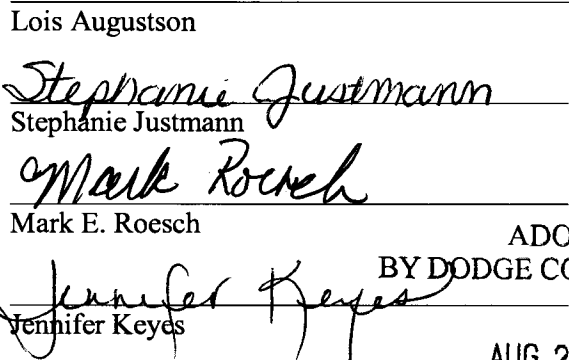 Lois Augustson
Stephanie Justmann
Stephanie Justmann
Mark Roesch
Mark E. Roesch
ADO
BY DODGE CO
Jennifer Keyes
Jennifer Keyes
AUG 2